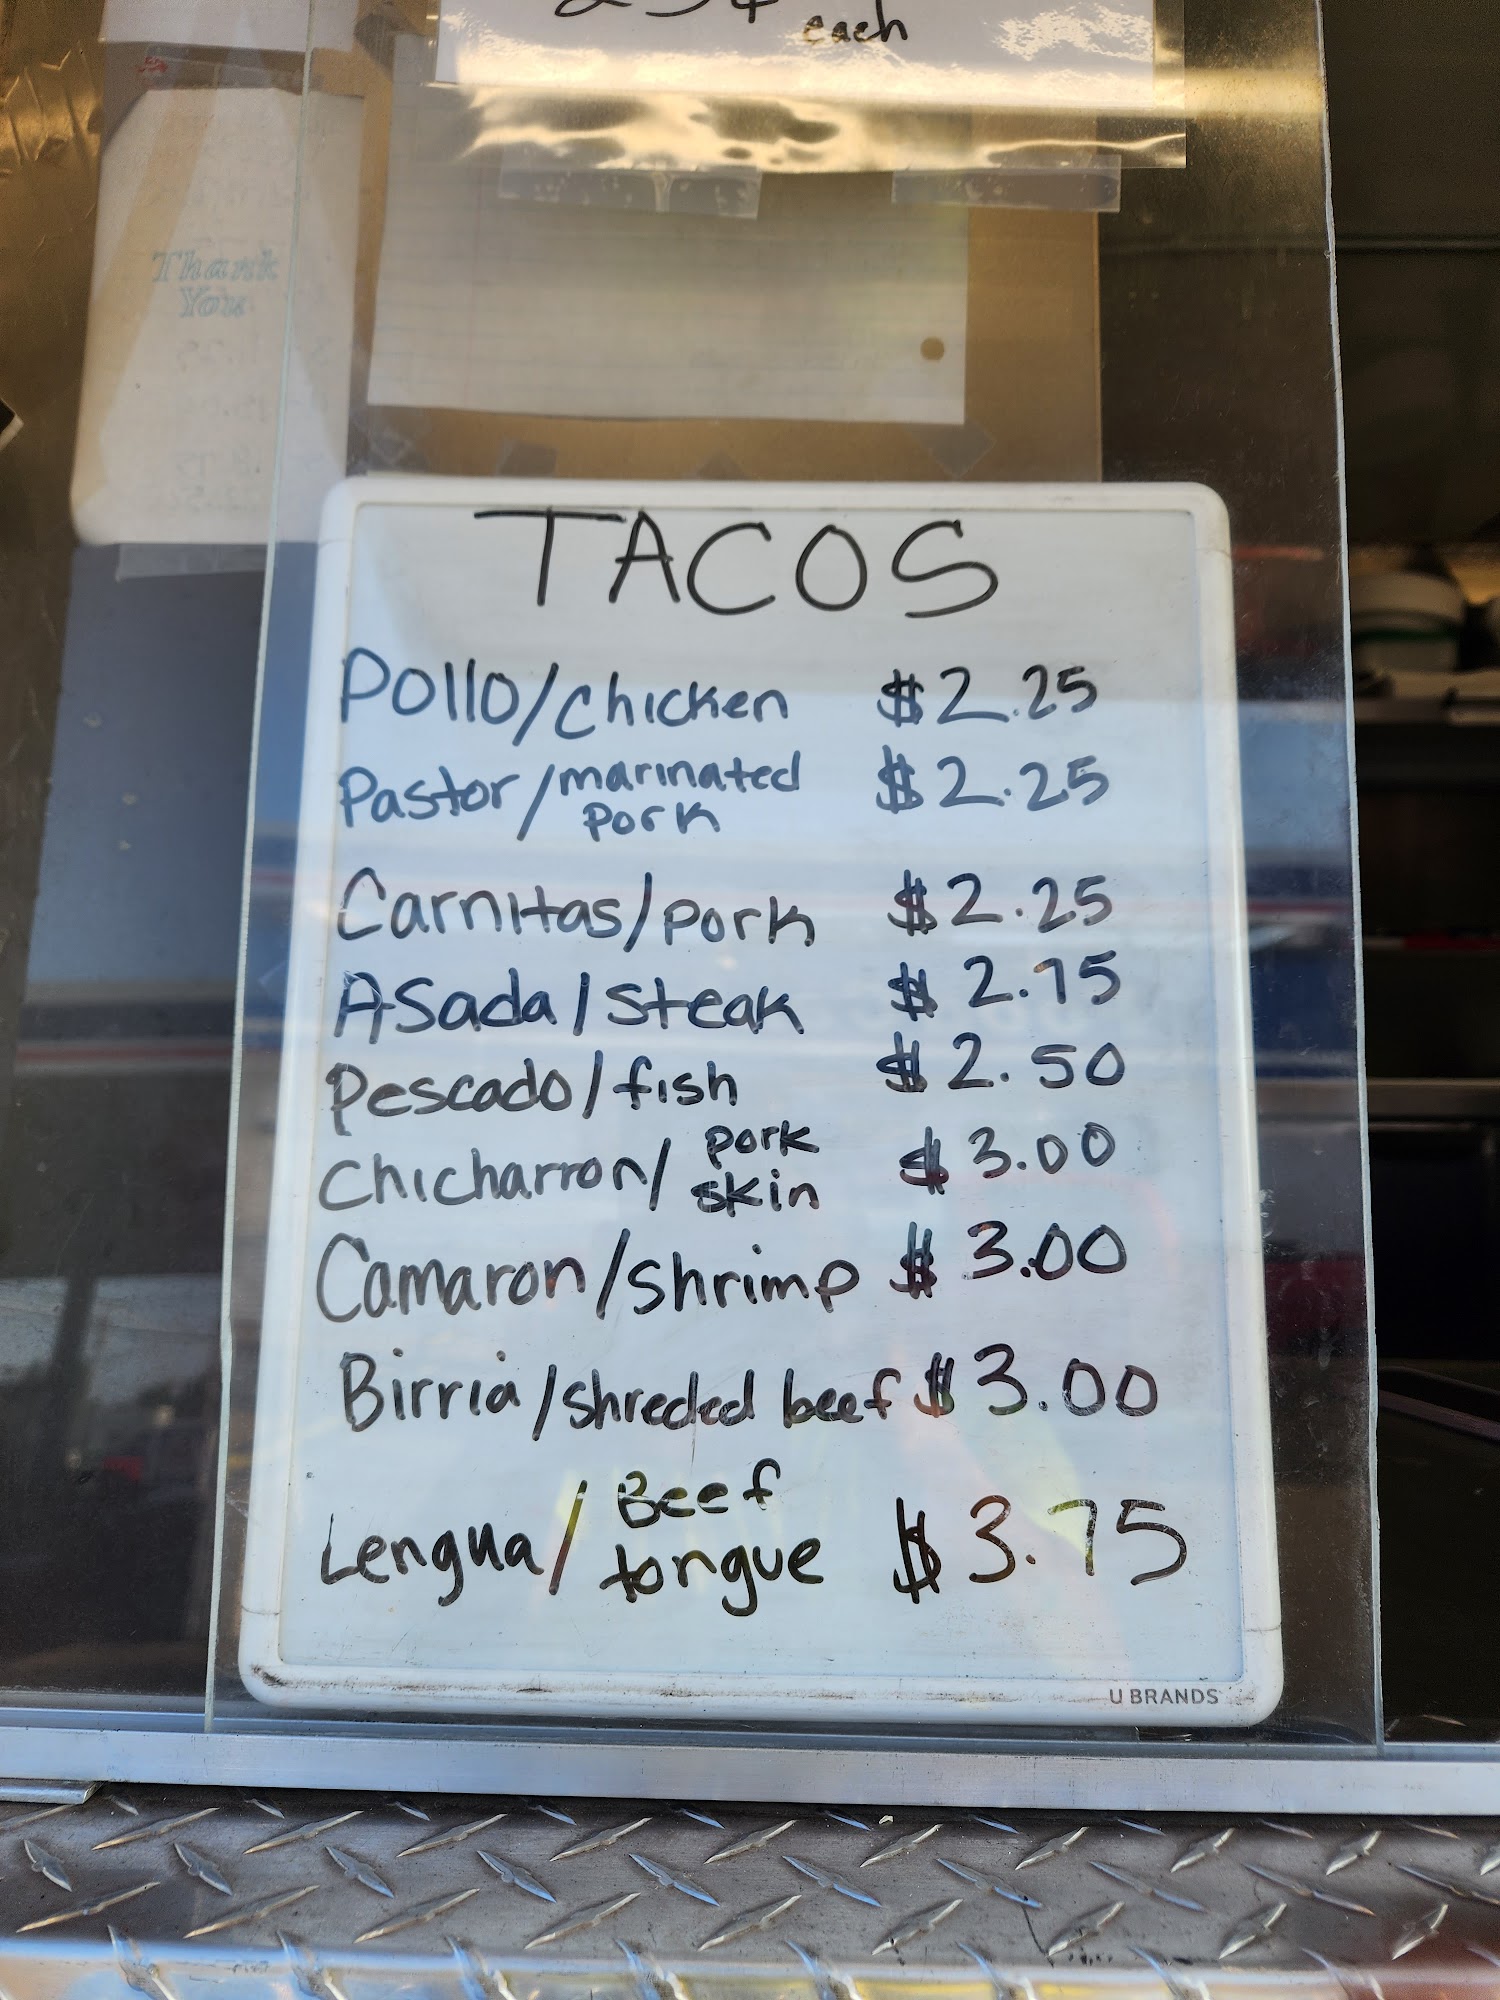 25¢ each
Thank
You
TACOS
Pollo/chicken $2.25
Pastor/marinated pork $2.25
Carnitas/pork $2.25
Asada/steak $2.75
Pescado/fish $2.50
Chicharron/pork skin $3.00
Camaron/shrimp $3.00
Birria/shreded beef $3.00
Lengua/Beef tongue $3.75
U BRANDS